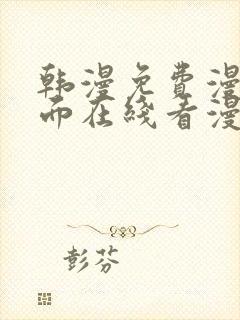 韩漫免费漫
而在线看漫
彭芬